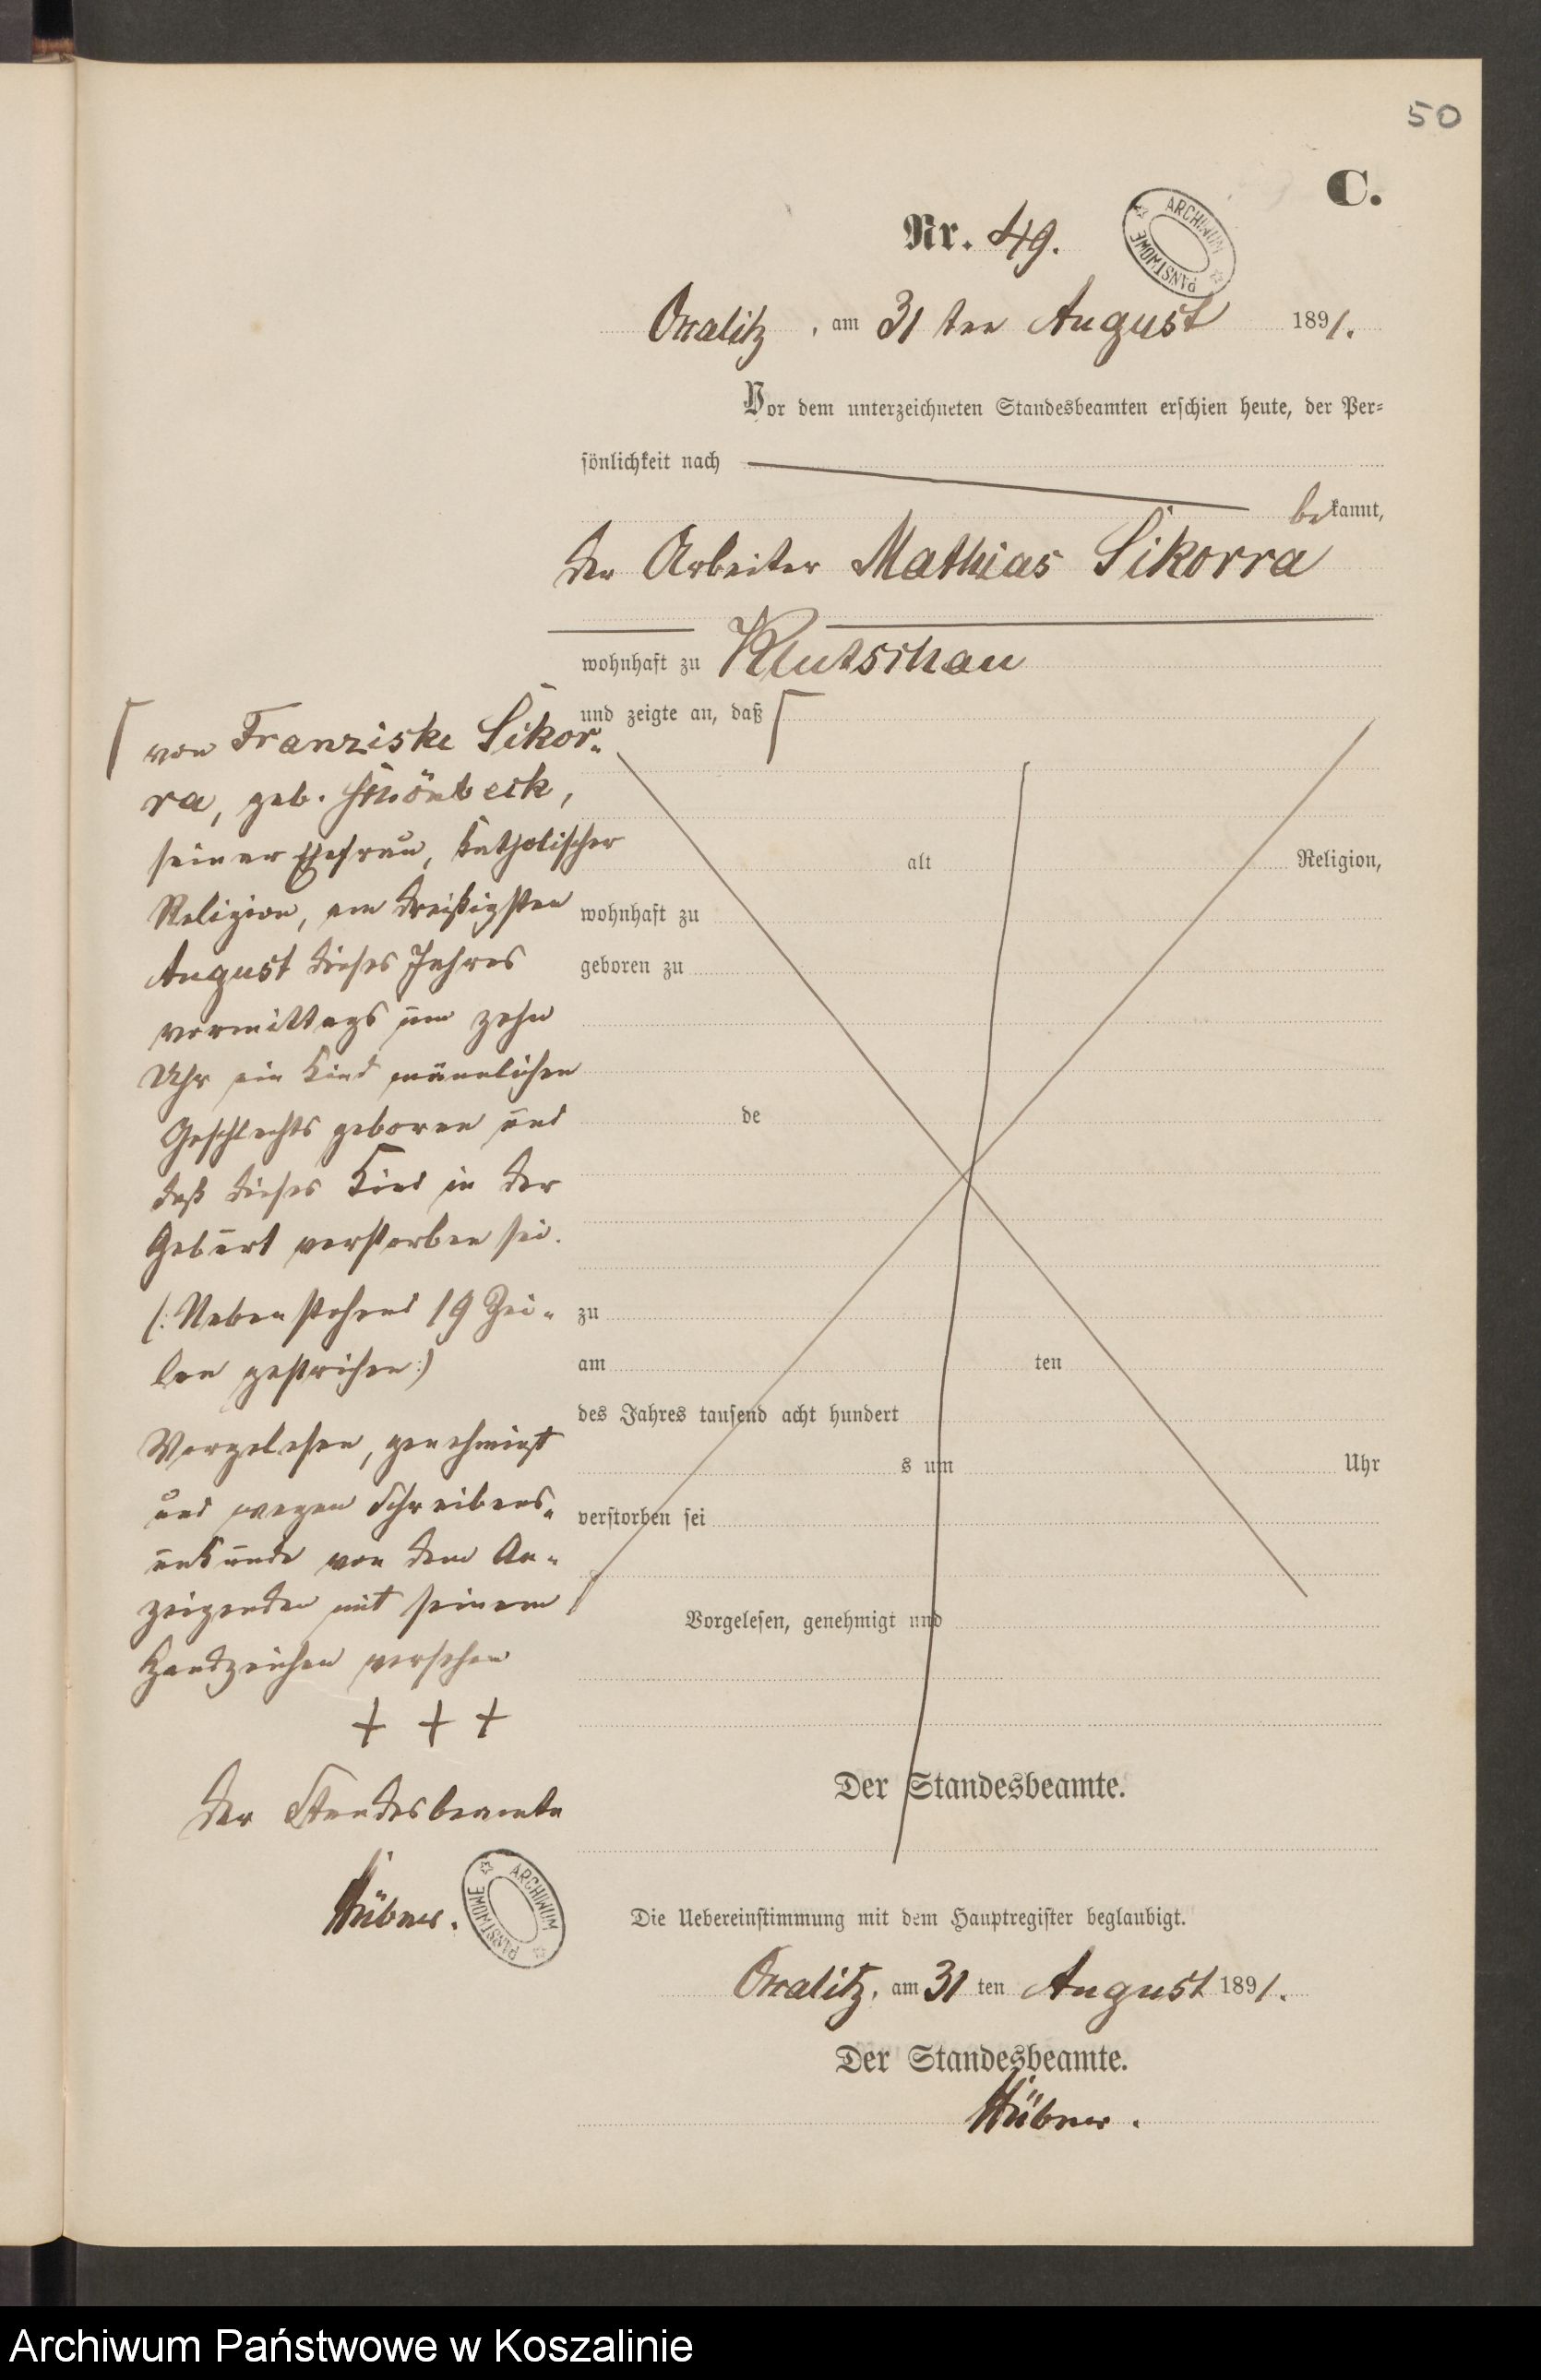 50
C.
Nr. 49.
ARCHIWUM PAŃSTWOWE
Occalitz, am 31 ten August 1891.
Vor dem unterzeichneten Standesbeamten erschien heute, der Per-
sönlichkeit nach
bekannt,
der Arbeiter Mathias Sikorra
wohnhaft zu Klutschau
und zeigte an, daß
von Franziske Sikor-
ra, geb. Schönbeck,
seiner Ehefrau, katholischer
Religion, am dreißigsten
August dieses Jahres
vormittags um zehn
Uhr ein Kind männlichen
Geschlechts geboren und
daß dieses Kind in der
Geburt verstorben sei.
(: Nebenstehend 19 Zei-
len gestrichen :)
Vorgelesen, genehmigt
und wegen Schreibens-
unkunde von dem An-
zeigenden mit seinem
Handzeichen versehen
+ + +
Der Standesbeamte
Hübner.
ARCHIWUM PAŃSTWOWE
alt Religion,
wohnhaft zu
geboren zu
de
zu
am ten
des Jahres tausend acht hundert
s um Uhr
verstorben sei
Vorgelesen, genehmigt und
Der Standesbeamte.
Die Uebereinstimmung mit dem Hauptregister beglaubigt.
Occalitz, am 31 ten August 1891.
Der Standesbeamte.
Hübner.
Archiwum Państwowe w Koszalinie